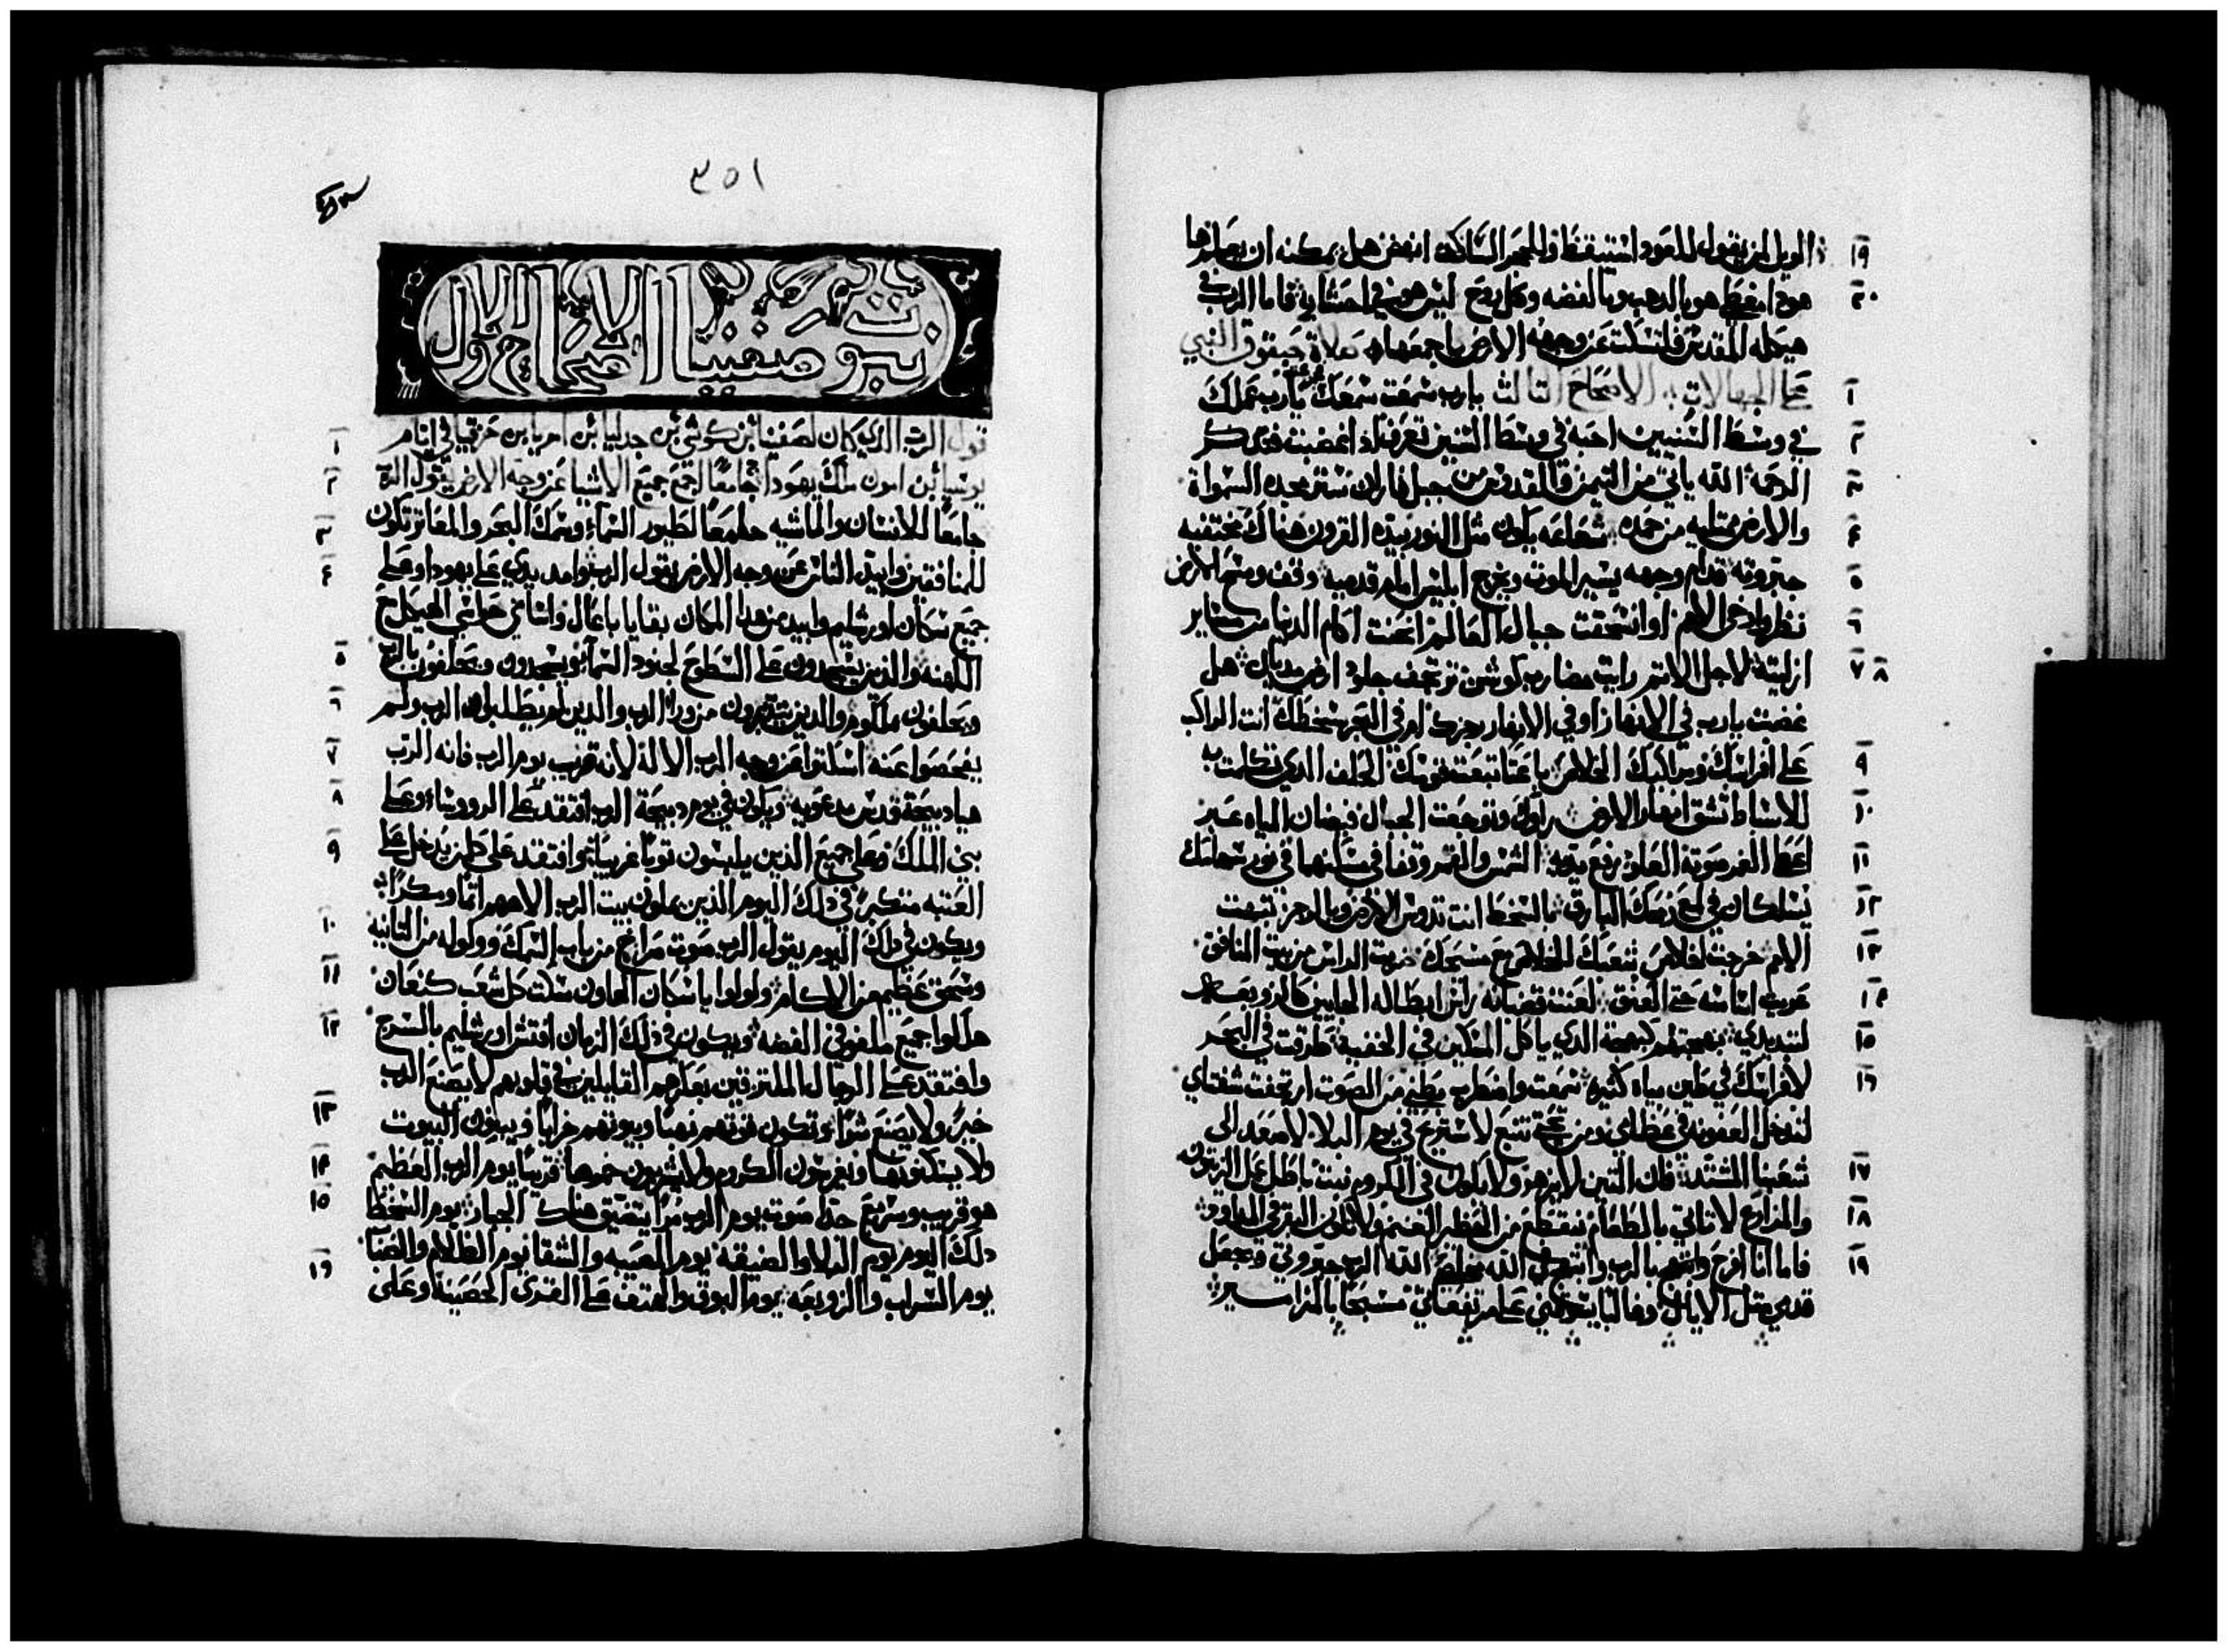 ١٩ الويل لمن يقول للعود استيقظ وللحجر الساكت انهض هل يمكنه ان يعلم ها
٢٠ هوذا مغطي هو بالدهب وبالفضه وكل روح ليس هو في احشايه فاما الرب في
هيكله المقدس فلتسكت عن وجهه الارض باجمعها صلاة حبقوق النبي
١ علي الجهالات الاصحاح التالت يارب سمعت سمعك يارب عملك
٢ في وسط السنيين احيه في وسط السنين تعرف اذا غضبت فتدكر
٣ الرحمه الله ياتي من التيمن والقدوس من جبل فاران ستر مجده السمواة
٤ والارض ممتليه من حمده شعاعه يكون مثل النور بيده القرون هناك مختفيه
٥ جبروته قدام وجهه يسير الموت ويخرج ابليس امام قدميه وقف ومسح الارض
٦ نظر وادخي الامم وانسحقت جبال العالم انحنت اكام الدنيا من مسَاير
٧ ٨ ازليته لاجل الاتم رايت مضارب كوش ترتجف جلود ارض مديان هل
غضبت يارب في الانهار او في الانهار رجزك ام في البحر سخطك انت الراكب
٩ علي افراسك ومراكبك الخلاص باعثا تبعث قوسك الحلف الدي تكلمت به
١٠ للاسباط تشق انهار الارض راوك وتوجعت الجبال فيضان المياه عبر
١١ اعطا الغمر صوته العلو رفع يديه الشمس والقمر وقفا في مسكنهما في نور سهامك
١٢ يسلكان في لمع رمحك البارق بالسخط انت تدوس الارض وبالرجز تبهت
١٣ الامم خرجت لخلاص شعبك للخلاص مع مسيحك ضربت الراس من بيت المنافق
١٤ عريت اساسه حتي العنق لعنت قضبانه راس ابطاله الجايين كالزوبعه
١٥ لتبديدي بهجتهم كبهجة الدي ياكل المسكين في الخفيه طرقت في البحر
١٦ لافراسك في طين مياه كثيره سمعت واضطرب بطني من الصوت ارتجفت شفتاي
لتدخل العفونه في عظامي ومن تحتي تنبع لاستريح في يوم البلا لاصعد الي
١٧ شعبنا المشتد فان التين لا يزهر ولا يكون في الكروم نبت باطل عمل الزيتون
١٨ والمزارع لا تاتي بالطعام تنقطع من الحظير الغنم ولا تكون البقر في المداود
١٩ فاما انا افرح وابتهج بالرب وابتهج بالله مخلصي الله الرب جبروتي ويجعل
قدمي مثل الايايل وغالبا يتحكني علي مرتفعاتي مسبحا بالمزامير
٣٥١
نبوة صفنيا الاصحاح الاول
١ قول الرب الدي كان لصفنيا بن كوشي بن جدليا بن امريا بن حزقيا في ايام
٢ يوشيا بن امون ملك يهودا جامعا اجمع جميع الاشيا عن وجه الارض يقول الرب
٣ جامعا للانسان والماشيه جامعا لطيور السماء وسمك البحر والمعاتر تكون
٤ للمنافقين وابيد الناس عن وجه الارض يقول الرب وامد يدي علي يهودا وعلي
جميع سكان اورشليم وابيد من هذا المكان بقايا باعال واسامي حافظي الهيكل مع
٥ الكهنه والذين يسجدون علي السطوح لجنود السماء ويسجدون ويحلفون بالرب
٦ ويحلفون بملكوم والدين يتدبرون من ورا الرب والدين لم يطلبوا الرب ولم
٧ يفحصوا عنه اسكتوا عن وجه الرب الاله لانه قريب يوم الرب فانه الرب
٨ هيا دبيحة قدس مدعويه ويكون في يوم دبيحة الرب افتقد علي الروساء وعلي
٩ بني الملك وعلي جميع الذين يلبسون ثوبا غريبا وافتقد علي كل من يدخل علي
العتبه متكبرا في ذلك اليوم الذين يملون بيت الرب الاههم اتما ومكرا
١٠ ويكون في ذلك اليوم يقول الرب صوت صراخ من باب السمك وولوله من التانيه
١١ وسحق عظيم من الاكام ولولوا يا سكان الهاون سكت كل شعب كنعان
١٢ هلكوا جميع ملفوفي الفضه ويكون في ذلك الزمان افتش اورشليم بالسرج
وافتقد علي الرجال الملتزقين بعكرهم القايلين في قلوبهم لا يصنع الرب
١٣ خيرا ولا يصنع شرا وتكون قوتهم نهبا وبيوتهم خرابا ويبنون البيوت
١٤ ولا يسكنونها ويغرسون الكروم ولا يشربون خمرها قريبا يوم الرب العظيم
١٥ هو قريب وسريع جدا صوت يوم الرب مرا يتضيق هناك الجبار يوم السخط
دلك اليوم يوم البلا والضيقه يوم المصيبه والشقا يوم الظلام والضباب
١٦ يوم السراب والزوبعه يوم البوق والهتف علي القري الحصينه وعلي